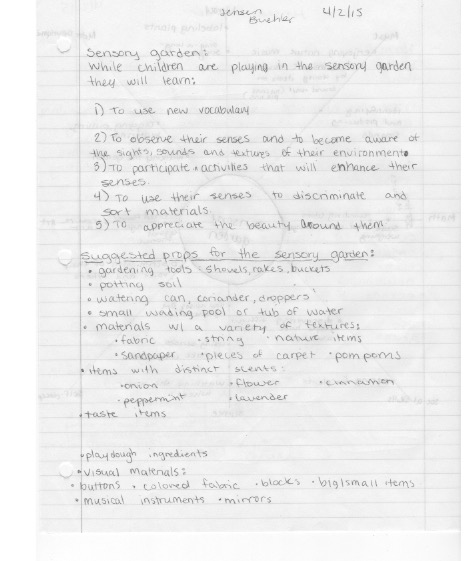 Jensen
Buehler
4/2/15
Sensory garden:
While children are playing in the sensory garden
they will learn:
1) To use new vocabulary
2) To observe their senses and to become aware of
the sights, sounds and textures of their environment
3) To participate activities that will enhance their
senses.
4) To use their senses to discriminate and
sort materials
5) To appreciate the beauty around them
Suggested props for the sensory garden:
• gardening tools- shovels, rakes, buckets
• potting soil
• watering can, coriander, droppers
• small wading pool or tub of water
• materials w/ a variety of textures:
• fabric • string • nature items
• sandpaper • pieces of carpet • pompoms
• items with distinct scents:
• onion • flower • cinnamon
• peppermint • lavender
• taste items
• playdough ingredients
• visual materials:
• buttons • colored fabric • blocks • big/small items
• musical instruments • mirrors